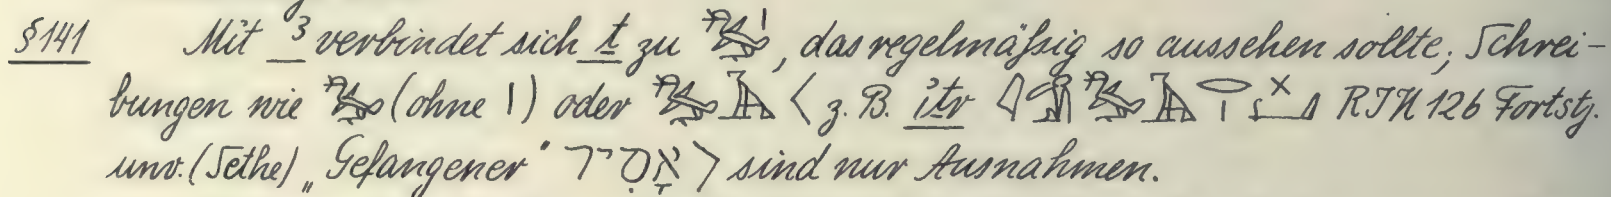 §141 Mit ꜣ verbindet sich ṯ zu 𓅷𓏤, das regelmäßig so aussehen sollte; Schrei-
bungen wie 𓅷 (ohne 𓏤) oder 𓅷𓄿 < z. B. iṯr Fortstg.
unv. (Sethe) „Gefangener“ אָסִיר > sind nur Ausnahmen.